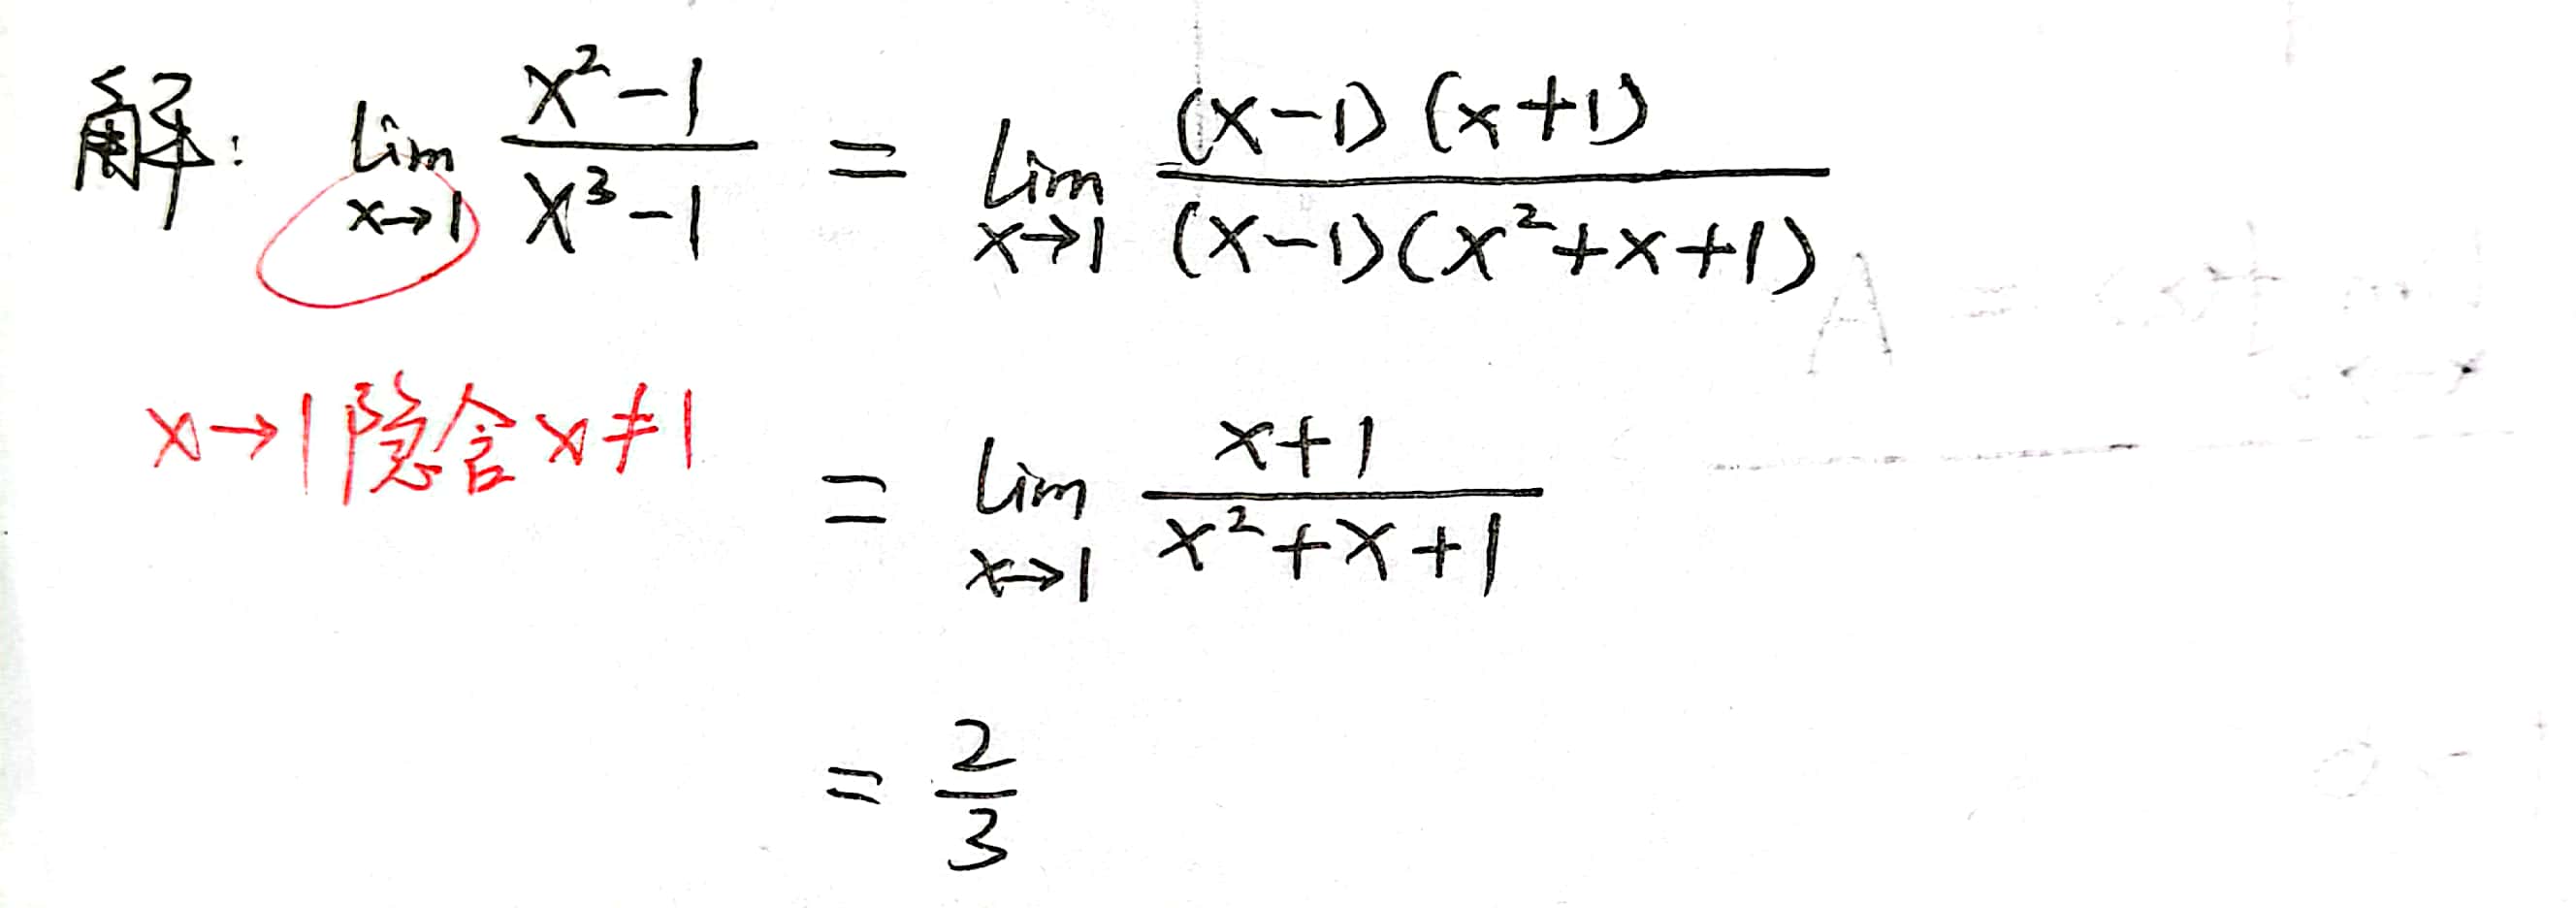 解: lim x→1 (x²-1)/(x³-1) = lim x→1 ((x-1)(x+1))/((x-1)(x²+x+1))
x→1隐含x≠1
= lim x→1 (x+1)/(x²+x+1)
= 2/3